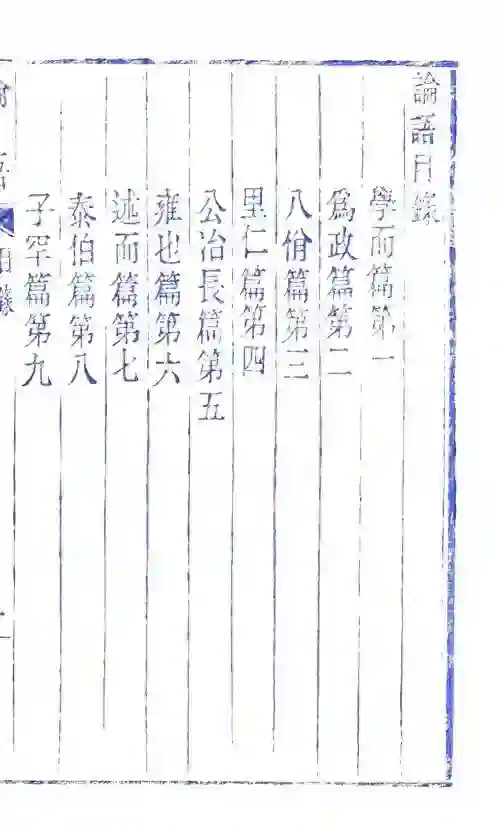 論語目錄
學而篇第一
爲政篇第二
八佾篇第三
里仁篇第四
公冶長篇第五
雍也篇第六
述而篇第七
泰伯篇第八
子罕篇第九
目錄